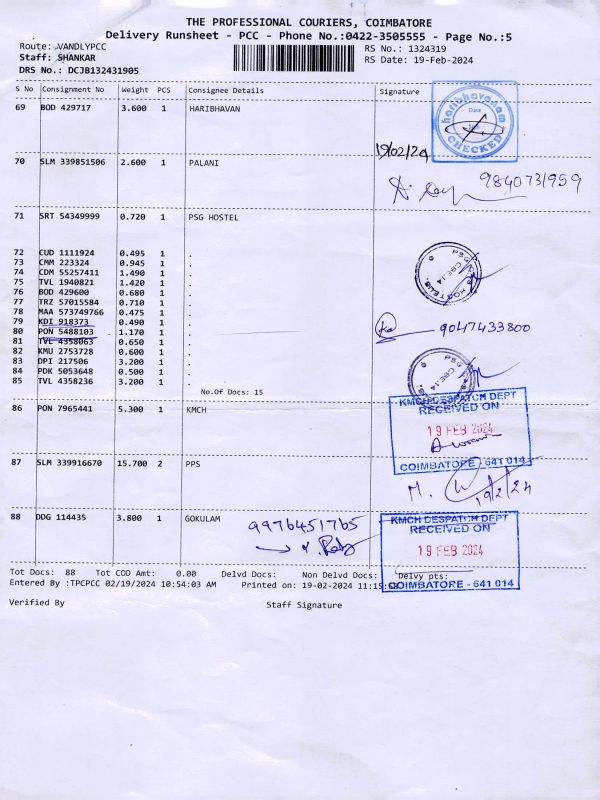 THE PROFESSIONAL COURIERS, COIMBATORE
Delivery Runsheet - PCC - Phone No.:0422-3505555 - Page No.:5
Route: VANDLYPCC RS No.: 1324319
Staff: SHANKAR RS Date: 19-Feb-2024
DRS No.: DCJB132431905
S No Consignment No Weight PCS Consignee Details Signature
69 BOD 429717 3.600 1 HARIBHAVAN
haribhavanam
Date
CHECKED
19/02/24
70 SLM 339851506 2.600 1 PALANI
9840731959
71 SRT 54349999 0.720 1 PSG HOSTEL
72 CUD 1111924 0.495 1 .
73 CMM 223324 0.945 1 .
74 CDM 55257411 1.490 1 .
75 TVL 1940821 1.420 1 .
76 BOD 429600 0.680 1 .
77 TRZ 57015584 0.710 1 .
78 MAA 573749766 0.475 1 .
79 KDI 918373 0.490 1 .
80 PON 5488103 1.170 1 .
9047433800
81 TVL 4358063 0.650 1 .
82 KMU 2753728 0.600 1 .
83 DPI 217506 3.200 1 .
84 PDK 5053648 0.500 1 .
85 TVL 4358236 3.200 1 .
No.Of Docs: 15
86 PON 7965441 5.300 1 KMCH
KMCH DESPATCH DEPT
RECEIVED ON
19 FEB 2024
COIMBATORE - 641 014
87 SLM 339916670 15.700 2 PPS
19/2/24
88 DDG 114435 3.800 1 GOKULAM
9976451765
KMCH DESPATCH DEPT
RECEIVED ON
19 FEB 2024
COIMBATORE - 641 014
Tot Docs: 88 Tot COD Amt: 0.00 Delvd Docs: Non Delvd Docs: Delvy pts:
Entered By :TPCPCC 02/19/2024 10:54:03 AM Printed on: 19-02-2024
Verified By Staff Signature